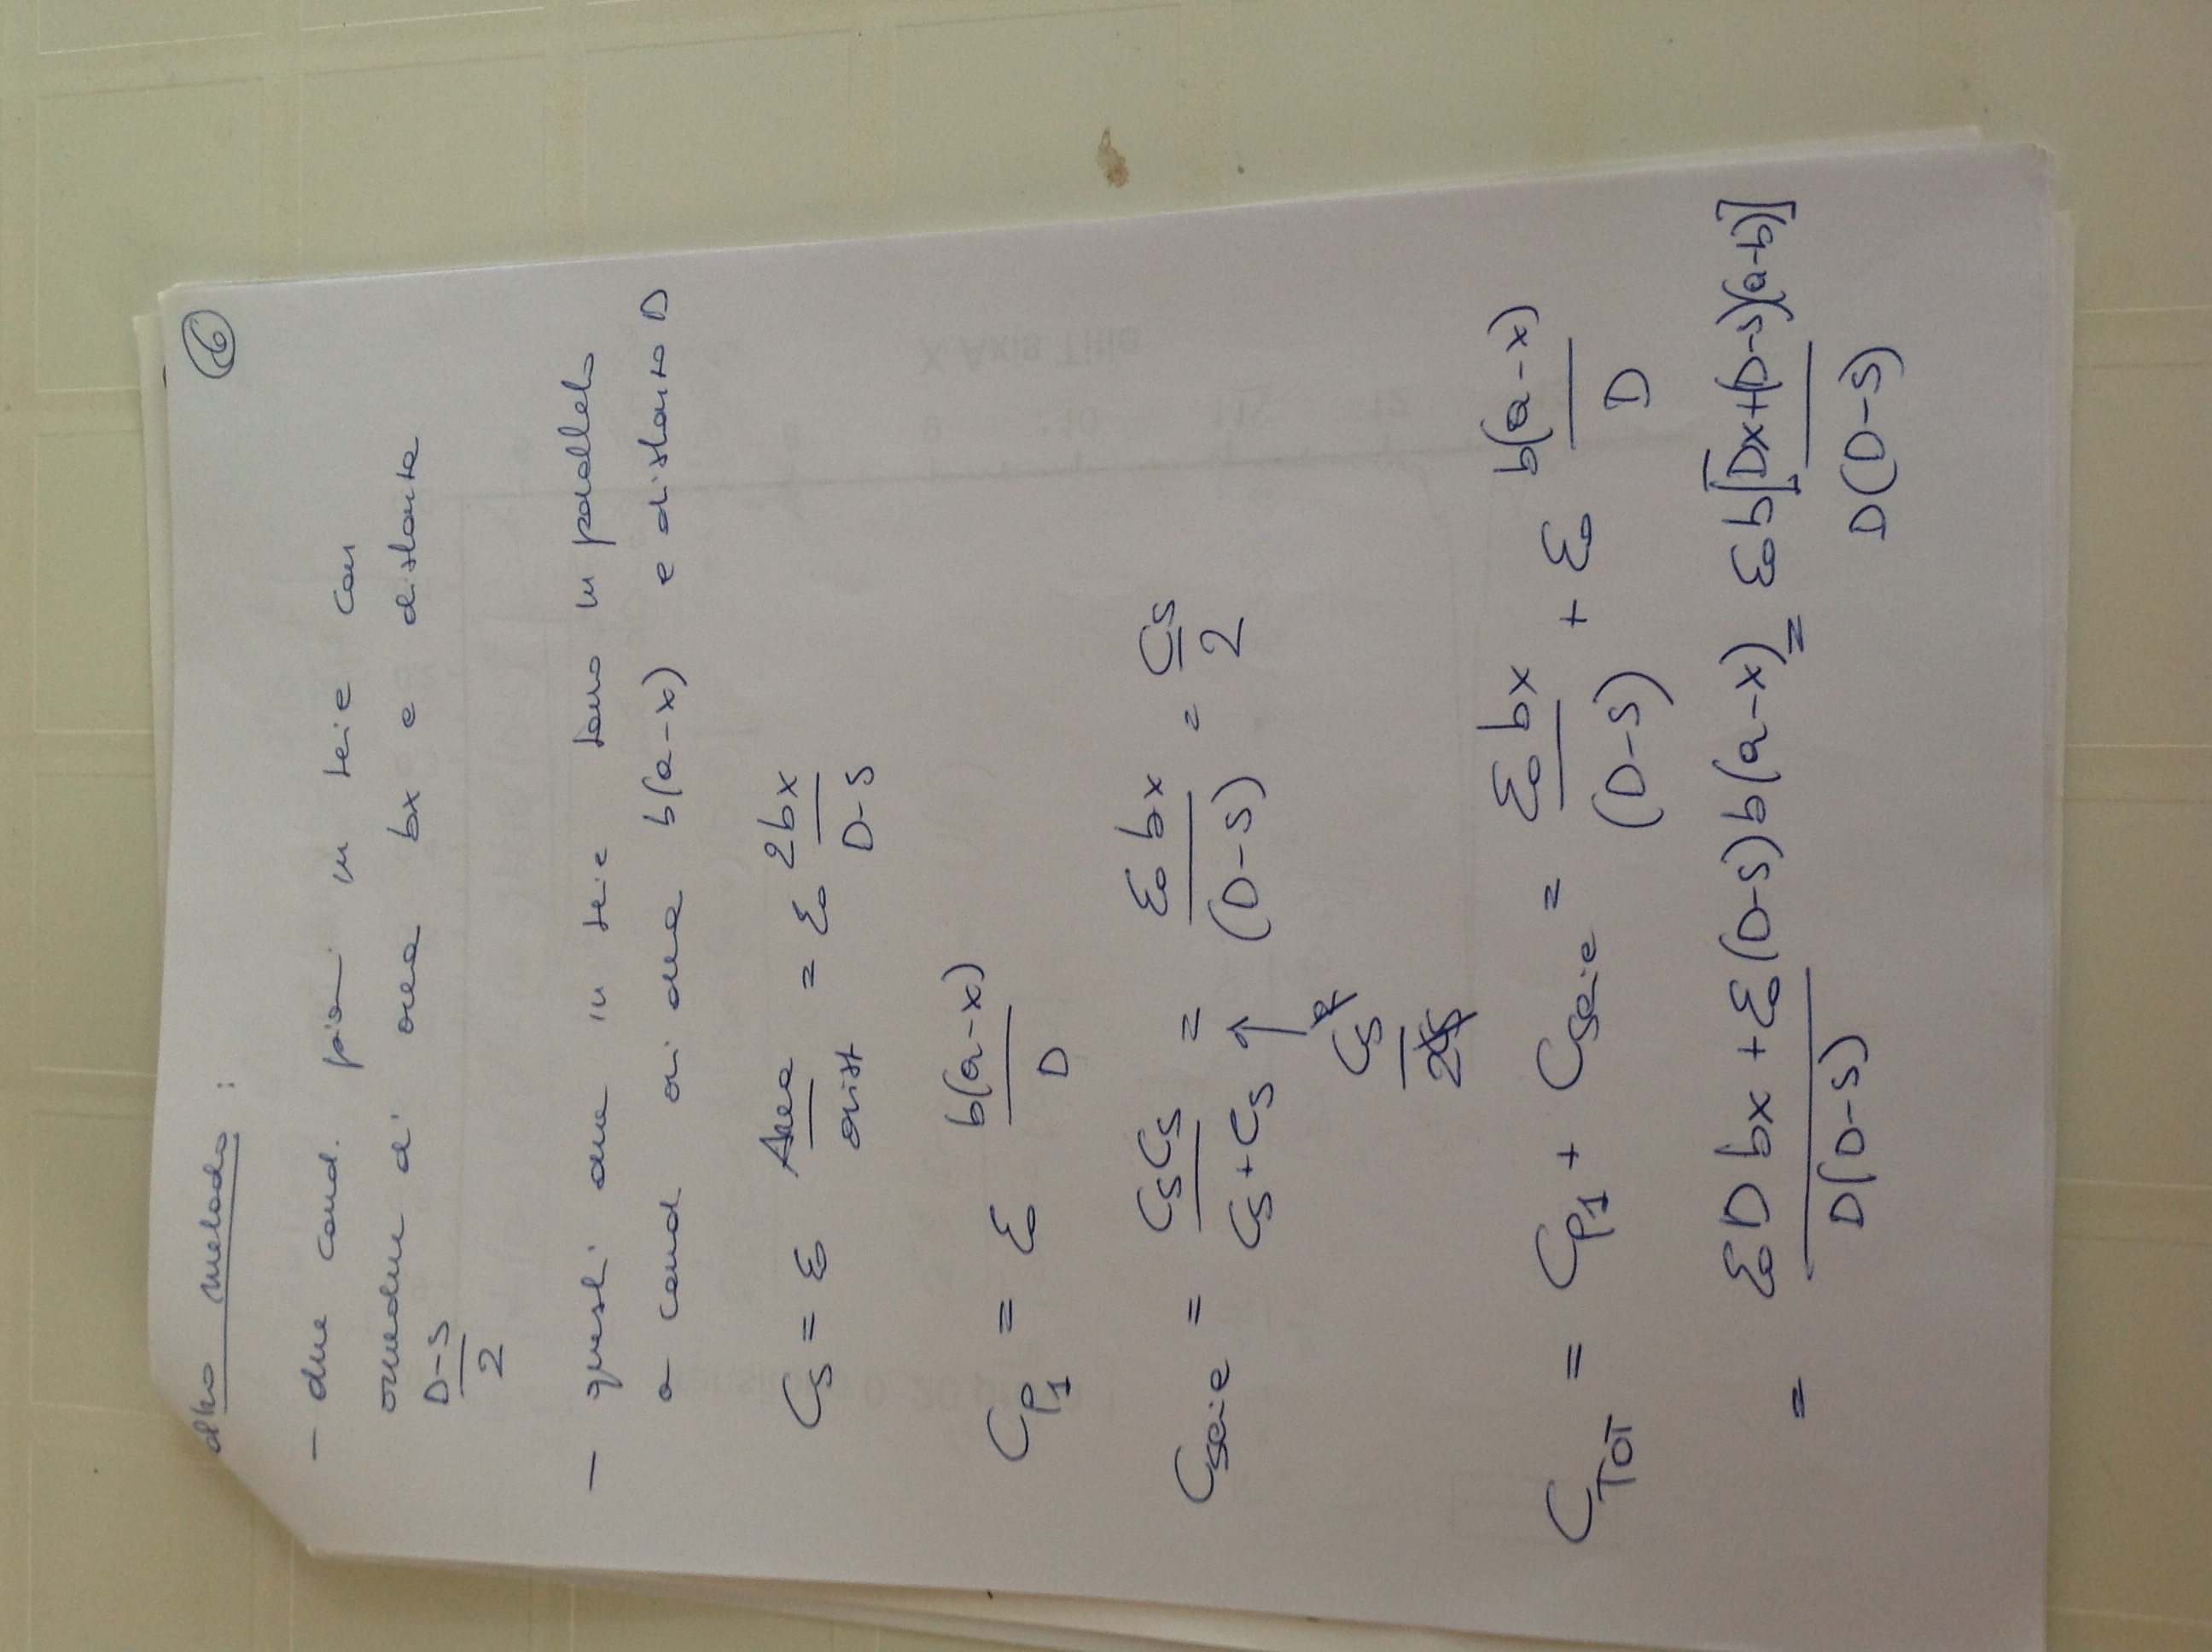 altro metodo :
6
- due cond. piani in serie con
armature di area bx e distanza
D-S
2
- questi due in serie sono in parallelo
a cond. di area b(a-x) e distanza D
Cs = ε0 Area/dist = ε0 2bx/(D-S)
Cp1 = ε0 b(a-x)/D
Cserie = CsCs/(Cs+Cs) = ε0 bx/(D-S) = Cs/2
↑
Cs
2
CTOT = Cp1 + Cserie = ε0 bx/(D-S) + ε0 b(a-x)/D
= (ε0 D bx + ε0 (D-S) b(a-x))/(D(D-S)) = ε0 b[Dx+(D-S)(a-b)]/(D(D-S))